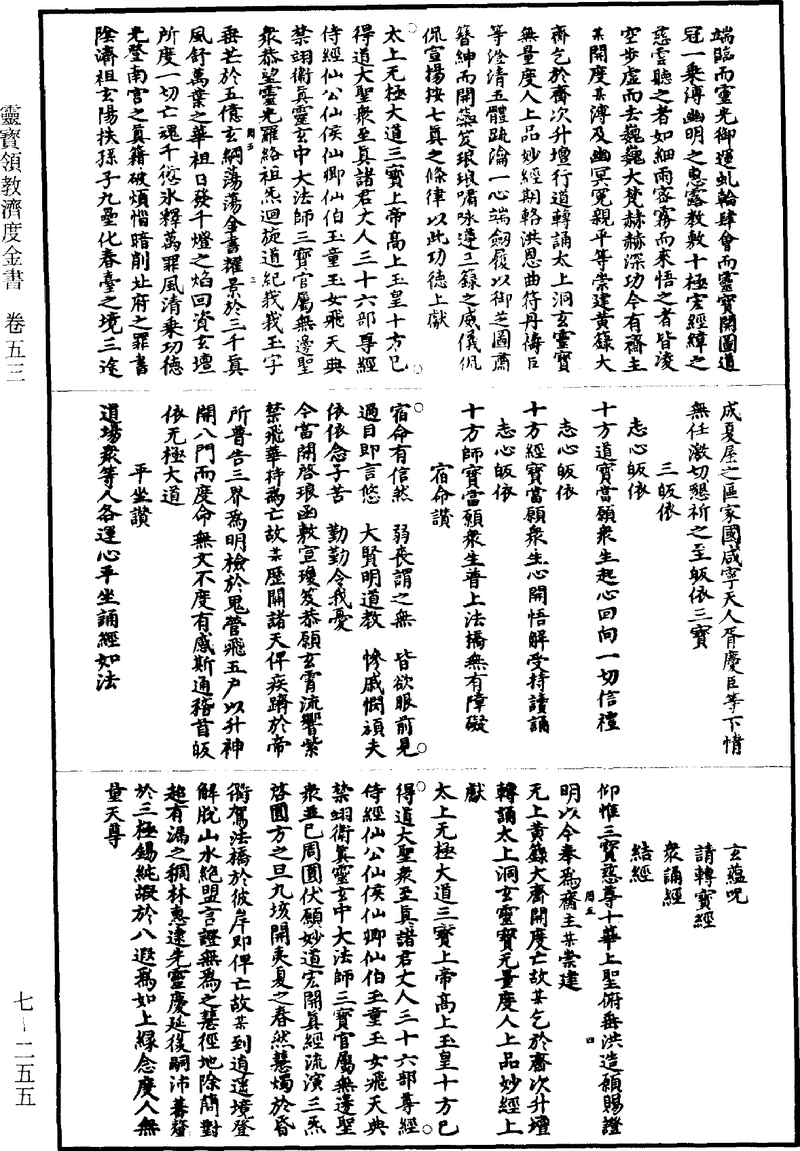 靈寶領教濟度金書　卷五三
七—二五五
端臨而靈光御運虬輪肆會而靈寶開圖道
冠一乘溥幽明之惠露教敷十極宏經緯之
慈雲聽之者如細雨密霧而來悟之者皆淩
空步虛而去巍巍大梵赫赫深功今有齋主
某開度某溥及幽冥冤親平等崇建黃籙大
齋乞於齋次升壇行道轉誦太上洞玄靈寶
無量度人上品妙經期輅洪恩曲符丹禱臣
等澄清五體疏瀹一心端劒履以御芝圖肅
簪紳而開蘂笈琅琅嘯咏遵三籙之威儀侃
侃宣揚按七真之條律以此功德上獻
太上无極大道三寶上帝高上玉皇十方已
得道大聖衆至真諸君丈人三十六部尊經
侍經仙公仙侯仙卿仙伯玉童玉女飛天典
禁翊衛真靈玄中大法師三寶官屬無邊聖
衆恭望靈光羅絡祖炁迴旋道紀峩峩玉字
垂芒於五億玄綱蕩蕩金書耀景於三千真
風舒萬葉之華祖日發千燈之焰回資玄壇
所度一切亡魂千愆氷釋萬罪風清乘功德
光登南宮之真籍破煩惱暗削址府之罪書
陰濟祖玄陽扶孫子九壘化春臺之境三途
成夏屋之區家國咸寧天人胥慶臣等下情
無任激切懇祈之至皈依三寶
三皈依
志心皈依
十方道寶當願衆生起心回向一切信禮
志心皈依
十方經寶當願衆生心開悟解受持讀誦
志心皈依
十方師寶當願衆生普上法橋無有障礙
宿命讚
宿命有信然　弱喪謂之無　皆欲眼前見
過目即言悠　大賢明道教　慘戚憫頑夫
依依念子苦　勤勤令我憂
今當開啓琅函敷宣瓊笈恭願玄霄流響紫
禁飛華持爲亡故某歷開諸天俾疾躋於帝
所普告三界爲明檢於鬼營飛五戶以升神
開八門而度命無文不度有感斯通稽首皈
依无極大道
平坐讚
道場衆等人各運心平坐誦經如法
玄蘊呪
請轉寶經
衆誦經
結經
仰惟三寶慈尊十華上聖俯垂洪造願賜證
明以今奉爲齋主某崇建
无上黃籙大齋開度亡故某乞於齋次升壇
轉誦太上洞玄靈寶无量度人上品妙經上
獻
太上无極大道三寶上帝高上玉皇十方已
得道大聖衆至真諸君丈人三十六部尊經
侍經仙公仙侯仙卿仙伯玉童玉女飛天典
禁翊衛真靈玄中大法師三寶官屬無邊聖
衆並已周圓伏願妙道宏開真經流演三炁
啓圓方之旦九垓開夷夏之春然慧燭於昏
衢駕法橋於彼岸即俾亡故某到逍遥境登
解脫山水絶盟言證無爲之慧徑地除簡對
超有漏之稠林惠逮先靈慶延後嗣沛蕃釐
於三極錫純嘏於八遐爲如上緣念度人無
量天尊